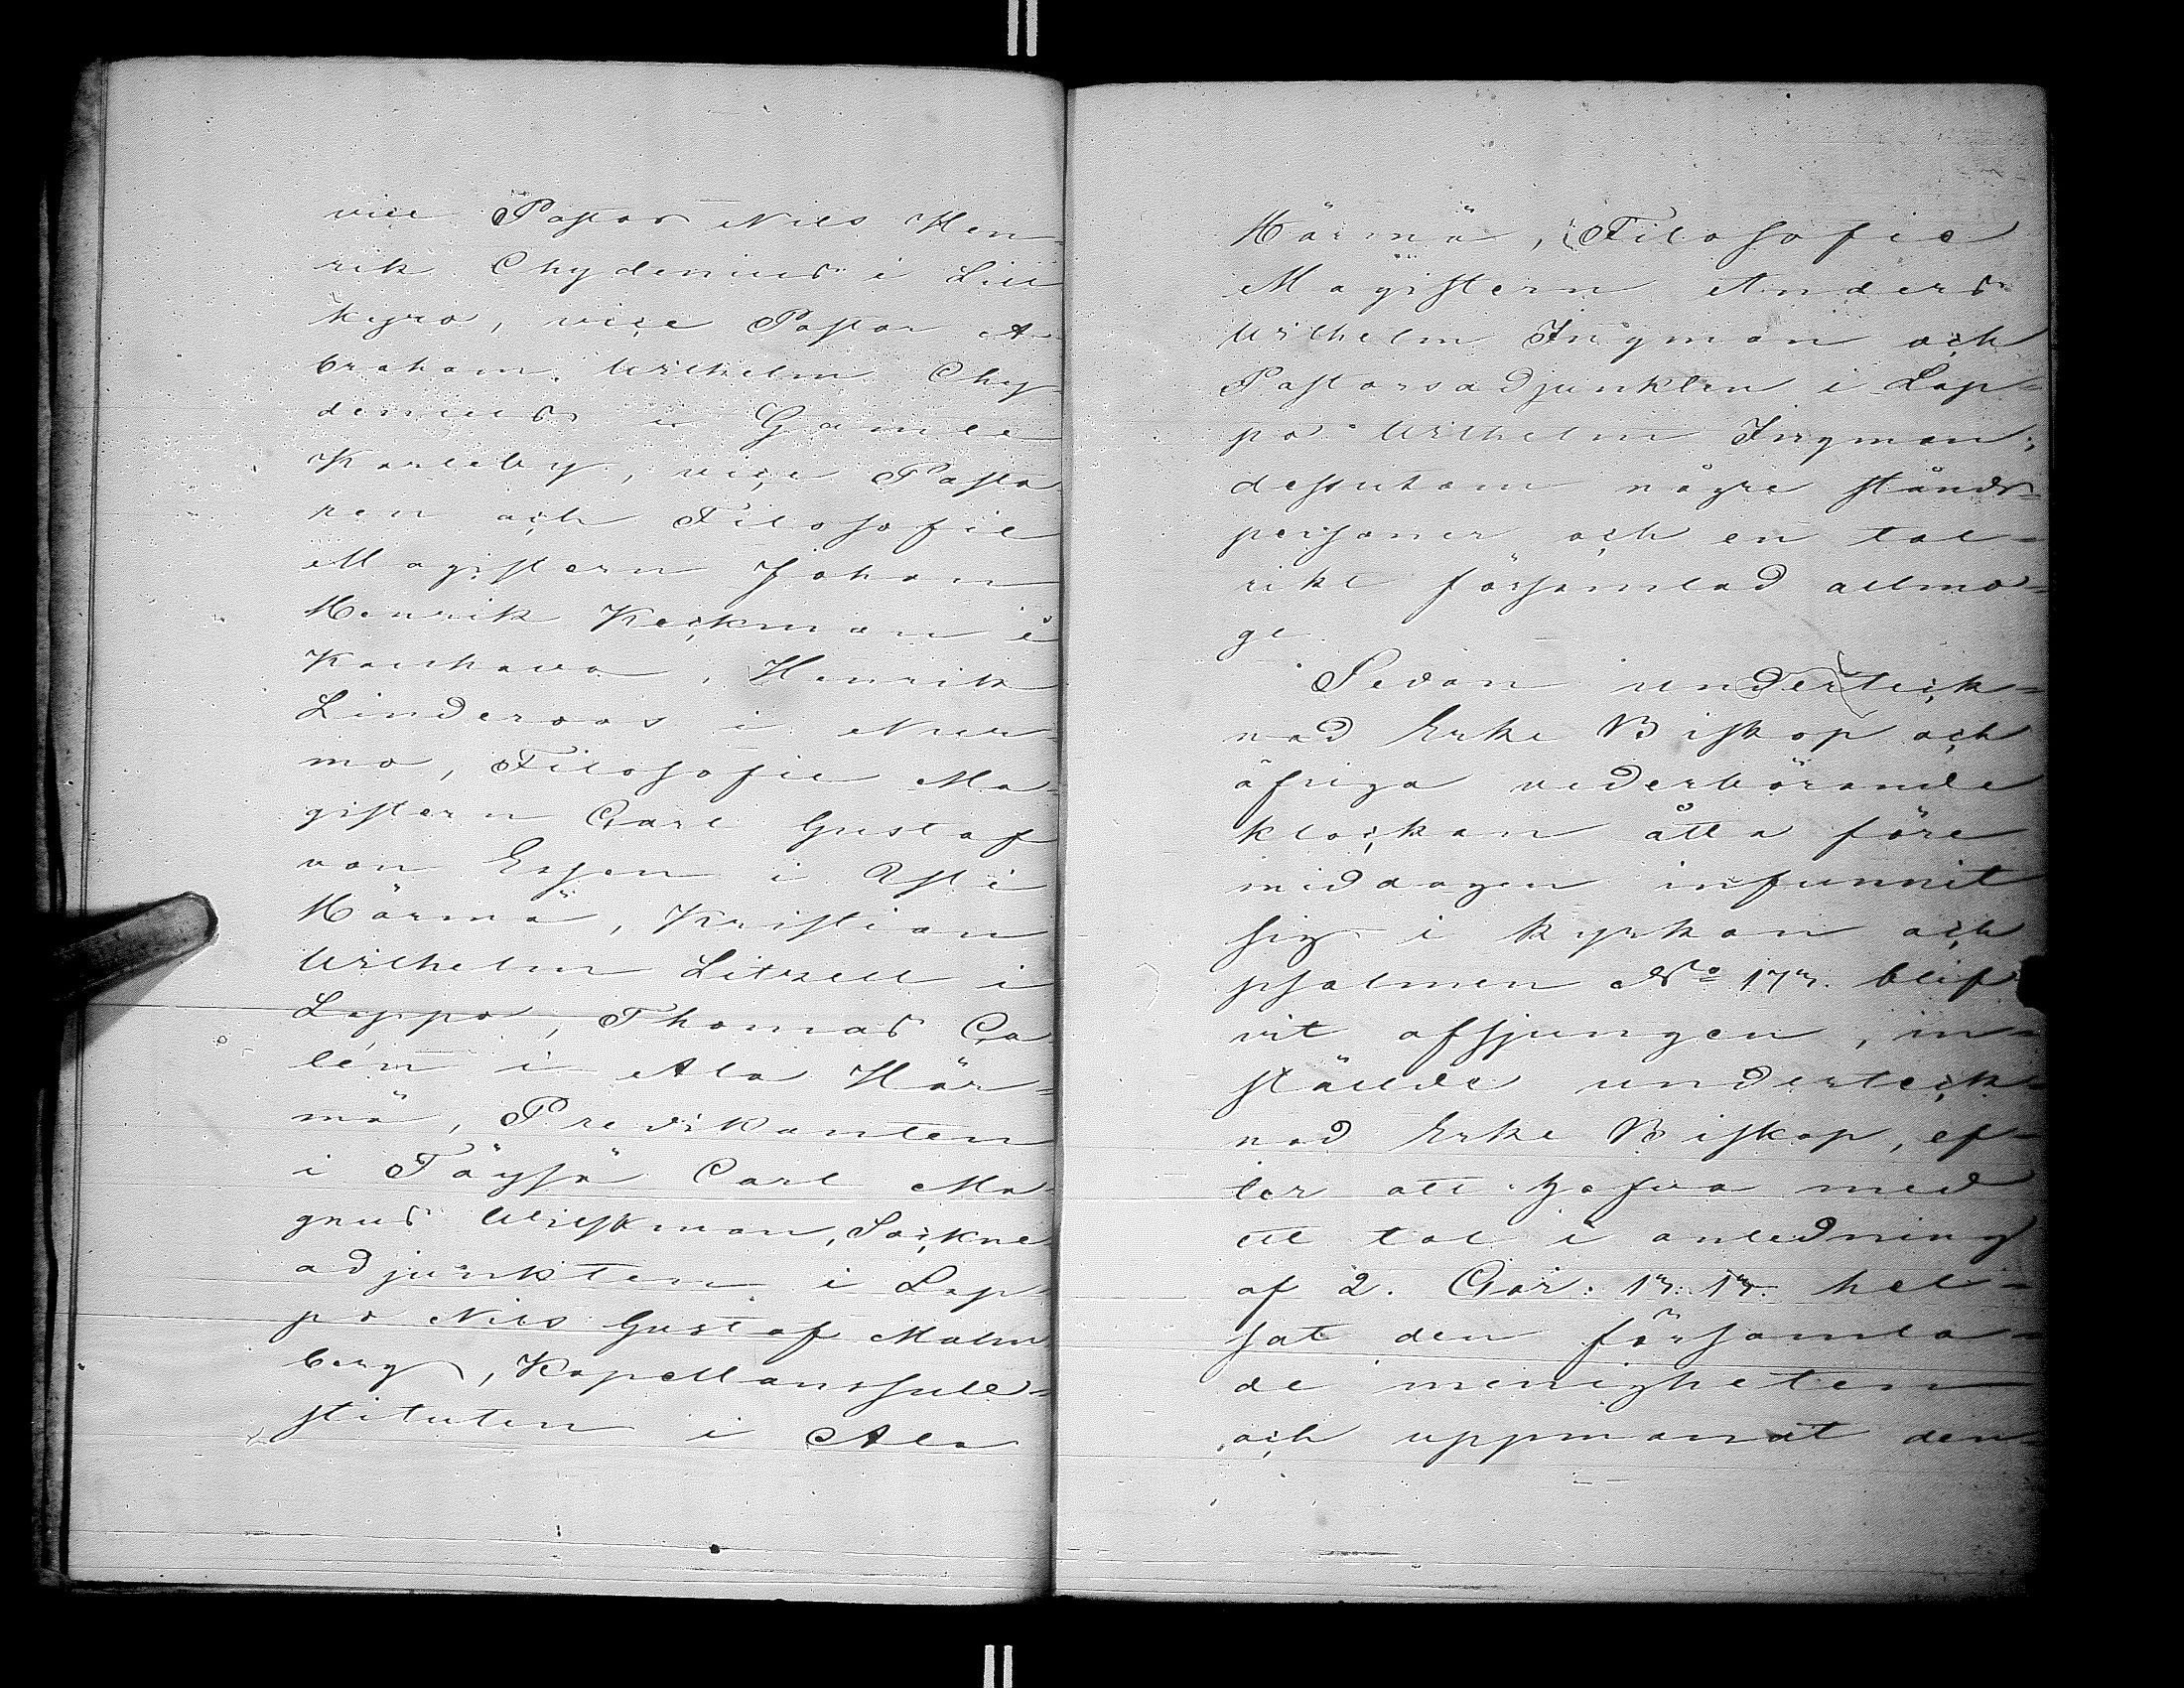 vice Pastor Nils Hen-
rik Chydenius i Lill
kyro, vice Pastor A-
braham Wilhelm Chy-
denius i Gamle
Karleby, vice Pasto-
ren och Filosofie
Magistern Johan
Henrik Keckman i
Kauhava, Henrik
Linderoos i Nur-
mo, Filosofie Ma-
gistern Carl Gustaf
von Essen i Yli
Härmä, Kristian
Wilhelm Litzell i
Lappo, Thomas Ca-
lém i Ala Här-
mä, Predikanten
i Töysä Carl Ma-
gnus Wickman, Sockne
adjunkten i Lap-
po Nils Gustaf Malm
berg, Kapellanssub-
stituten i Ala
Härmä, Filosofie
Magistern Anders
Wilhelm Ingman och
Pastorsadjunkten i Lap-
po Wilhelm Ingman;
dessutom några stånds-
personer och en tal-
rikt församlad allmo-
ge.
Sedan underteck-
nad Erke Biskop och
öfriga vederbörande
klockan åtta före
middagen infunnit
sig i kyrkan och
psalmen No blif
vit afsjungen, in-
stälde underteck-
nad Erke Biskop, ef-
ter att hafva med
ett tal i anledning
af 2. Cor: hel-
sat den församla-
de menigheten
och uppmanat den